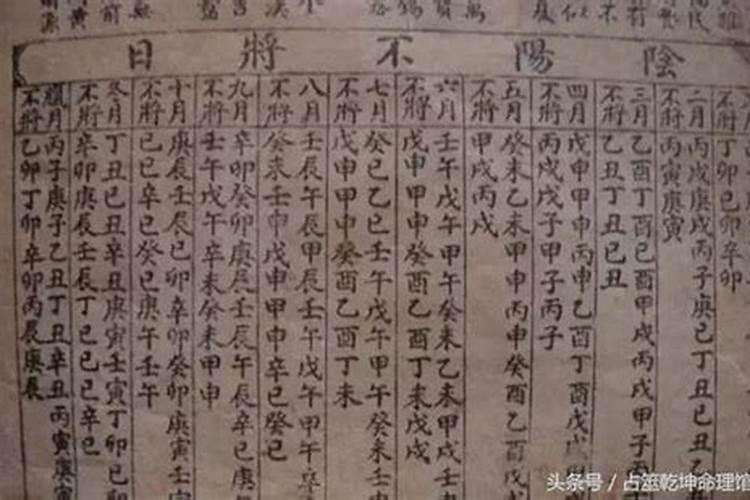 陰陽不將日
不將
丁卯己卯辛卯
二月
丙戌庚戌丙子庚己丁丑己丑
不將
丙寅庚寅
三月
乙酉丁酉己酉甲戌丙戌甲子丙
不將
乙丑丁丑己丑
四月
戊申甲申丙申乙酉丁酉戊戌
不將
丙戌戊子甲子丙子
五月
癸未乙未甲申丙申癸酉乙酉
不將
甲戌丙戌
六月
壬午戊午甲午癸未乙未甲戌壬
不將
戊申甲申癸酉乙酉丁未戊戌
七月
癸巳乙巳壬午戊午甲午癸未
不將
戊申甲申癸酉乙酉丁未
八月
壬辰午辰甲辰壬午戊午甲午
不將
癸未壬申戊申甲申辛巳癸巳
九月
辛卯癸卯庚辰壬辰午辰辛巳
不將
壬午戊午辛未癸未甲申
十月
庚辰壬辰己卯辛卯癸卯庚寅壬
不將
己巳辛巳癸巳庚午壬午
冬月
丁丑己丑辛丑庚寅壬寅丁卯己
不將
辛卯庚辰壬辰丁巳己巳辛巳
臘月
丙子庚子乙丑丁丑辛丑丙寅庚
不將
乙卯丁卯辛卯丙辰庚辰
头条号/占筮乾坤命理馆